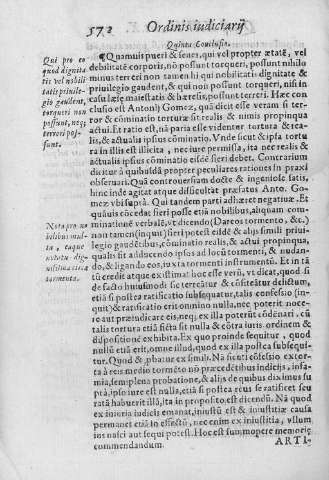 572 Ordinis iudiciarij
Quinta Conclusio.
Qui pro eo
quod dignita
te vel nobili
tate priuile-
gio gaudent,
torqueri non
possunt, neq;
terreri pos-
sunt.
¶Quamuis pueri & senes, qui vel propter ætatē, vel
debilitatē corporis, nō possunt torqueri, possunt nihilo
minus terreri non tamen hi qui nobilitati dignitate &
priuilegio gaudent, & qui non possunt torqueri, nisi in
casu læsæ maiestatis & hæresis, possunt terreri. Hæc con
clusio est Antonij Gomez, quā dicit esse veram si ter-
ror & cōminatio torturæ sit realis & nimis propinqua
actui. Et ratio est, nā paria esse videntur tortura & rea-
lis, & actualis ipsius cōminatio. Vnde sicut & ipsa tortu
ra in illis est illicita, nec iure permissa, ita nec realis &
actualis ipsius cōminatio eisdē fieri debet. Contrarium
dicitur à quibusdā propter peculiares rationes in praxi
obseruari. Quā controuersiam docte & ingeniose satis,
in hac onge indagat atque discutit præfatus Anto. Go-
mez vbi suprà. Qui tandem parti adhæret negatiuæ. Et
quāuis cōcedat fieri posse etiā nobilibus, aliquam com-
minationē verbalē, vt dicendo (Dareos tormento, &c.)
non tamen (inquit) fieri potest eisdē & alijs simili priui-
legio gaudētibus, cōminatio realis, & actui propinqua,
qualis sit adducendo ipsos ad locū tormenti, & nudan-
do, & ligando eos, iuxta tormenti instrumentū. Et in tā
tū credit atque existimat hoc esse verū, vt dicat, quod si
de facto huiusmodi sic terreātur & cōfiteātur delictum,
etiā si postea ratificatio subsequatur, talis confessio (in-
quit) & ratificatio erit omnino nulla, nec poterit noce-
re aut præiudicare eis, neq; ex illa poterūt cōdēnari. cū
talis tortura etiā ficta sit nulla & cōtra iuris ordinem &
dispositionē exhibita. Ex quo proinde sequitur, quod
nulla etiā erit, omne illud, quod ex illa postea subsequi-
tur. Quod & probatur ex simili. Na sicuti cōfessio extor-
ta à reis medio tormēto nō præcedētibus indicijs, infa-
mia, semiplena probatione, & alijs de quibus diximus su
prà, ipso iure est nulla, etiā si postea reus se ratificet seu
ratā habuerit illā, ita in proposito est dicendū. Nā quod
ex iniuria iudicis emanat, iniustū est & iniustitiæ causa
permanet etiā in effectū, nec enim ex iniustitia, vllum
ius nasci aut sequi potest. Hoc est summopere memoriæ
commendandum.
Nota pro no
bilibus mul-
tu, eaque
notatu dig-
nissima circa
tormenta.
ARTI-